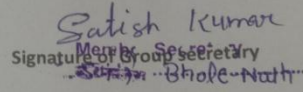 Satish Kumar
Member Secretary
Signature of Group secretary
Bhole-Nath